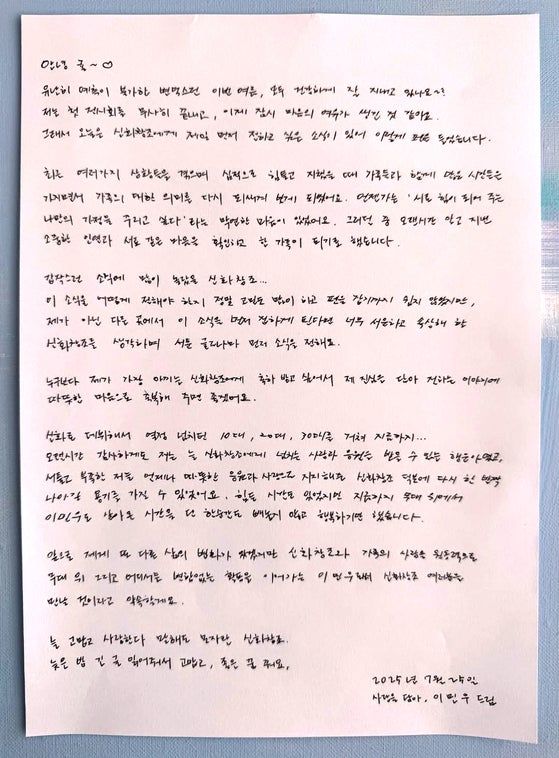 안녕 귤~♡
유난히 예측이 불가한 변덕스런 이번 여름, 모두 건강하게 잘 지내고 있나요~?
저는 첫 전시회를 무사히 끝내고, 이제 잠시 마음의 여유가 생긴 것 같아요.
그래서 오늘은 신화창조에게 제일 먼저 전하고 싶은 소식이 있어 이렇게 펜을 들었습니다.
최근 여러가지 상황들을 겪으며 심적으로 힘들고 지쳤을 때 가족들과 함께 많은 시간들을
가지면서 가족의 대한 의미를 다시 되새겨 보게 되었어요. 언젠가는 '서로 힘이 되어 주는
나만의 가정을 꾸리고 싶다'라는 막연한 마음이 있었어요. 그러던 중 오랜시간 알고 지낸
소중한 인연과 서로 같은 마음을 확인하고 한 가족이 되기로 했습니다.
갑작스런 소식에 많이 놀랐을 신화창조...
이 소식을 어떻게 전해야 하지 정말 고민도 많이 하고 펜을 잡기까지 쉽지 않았지만,
제가 아닌 다른 곳에서 이 소식을 먼저 접하게 된다면 너무 서운하고 속상해 할
신화창조를 생각하며 서툰 글로나마 먼저 소식을 전해요.
누구보다 제가 가장 아끼는 신화창조에게 축하 받고 싶어서 제 진심을 담아 전하는 이야기에
따뜻한 마음으로 축복해 주면 좋겠어요.
신화로 데뷔해서 열정 넘치던 10대, 20대, 30대를 거쳐 지금까지...
오랜시간 감사하게도 저는 늘 신화창조에게 넘치는 사랑과 응원을 받을 수 있는 행운아였고,
서툴고 부족한 저를 언제나 따뜻한 응원과 사랑으로 지지해준 신화창조 덕분에 다시 한 번 더
나아갈 용기를 가질 수 있었어요. 힘든 시간도 있었지만 지금까지 무대 위에서
이민우로 살아온 시간을 단 한순간도 빼놓지 않고 행복하기만 했습니다.
앞으로 제게 또 다른 삶의 변화가 찾겠지만 신화창조와 가족의 사랑을 원동력으로
무대 위 그리고 어디서든 변함없는 활동을 이어가는 이민우로 신화창조 여러분을
만날 것이라고 약속할게요.
늘 고맙고 사랑한다 말해도 모자란 신화창조.
늦은 밤 긴 글 읽어줘서 고맙고, 좋은 꿈 꿔요.
2025년 7월 25일
사랑을 담아, 이민우 드림